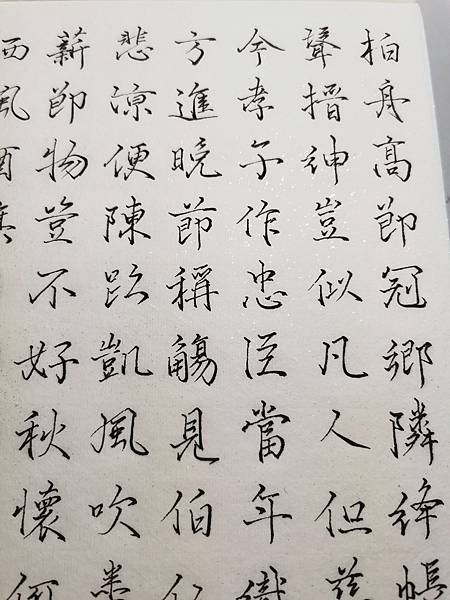 柏舟高節冠鄉隣絳帳
聳搢紳豈似凡人但慈
令孝子作忠臣當年織
方進晚節稱觴見伯仁
悲涼便陳跡凱風吹
薪節物豈不好秋懷何
西風酒